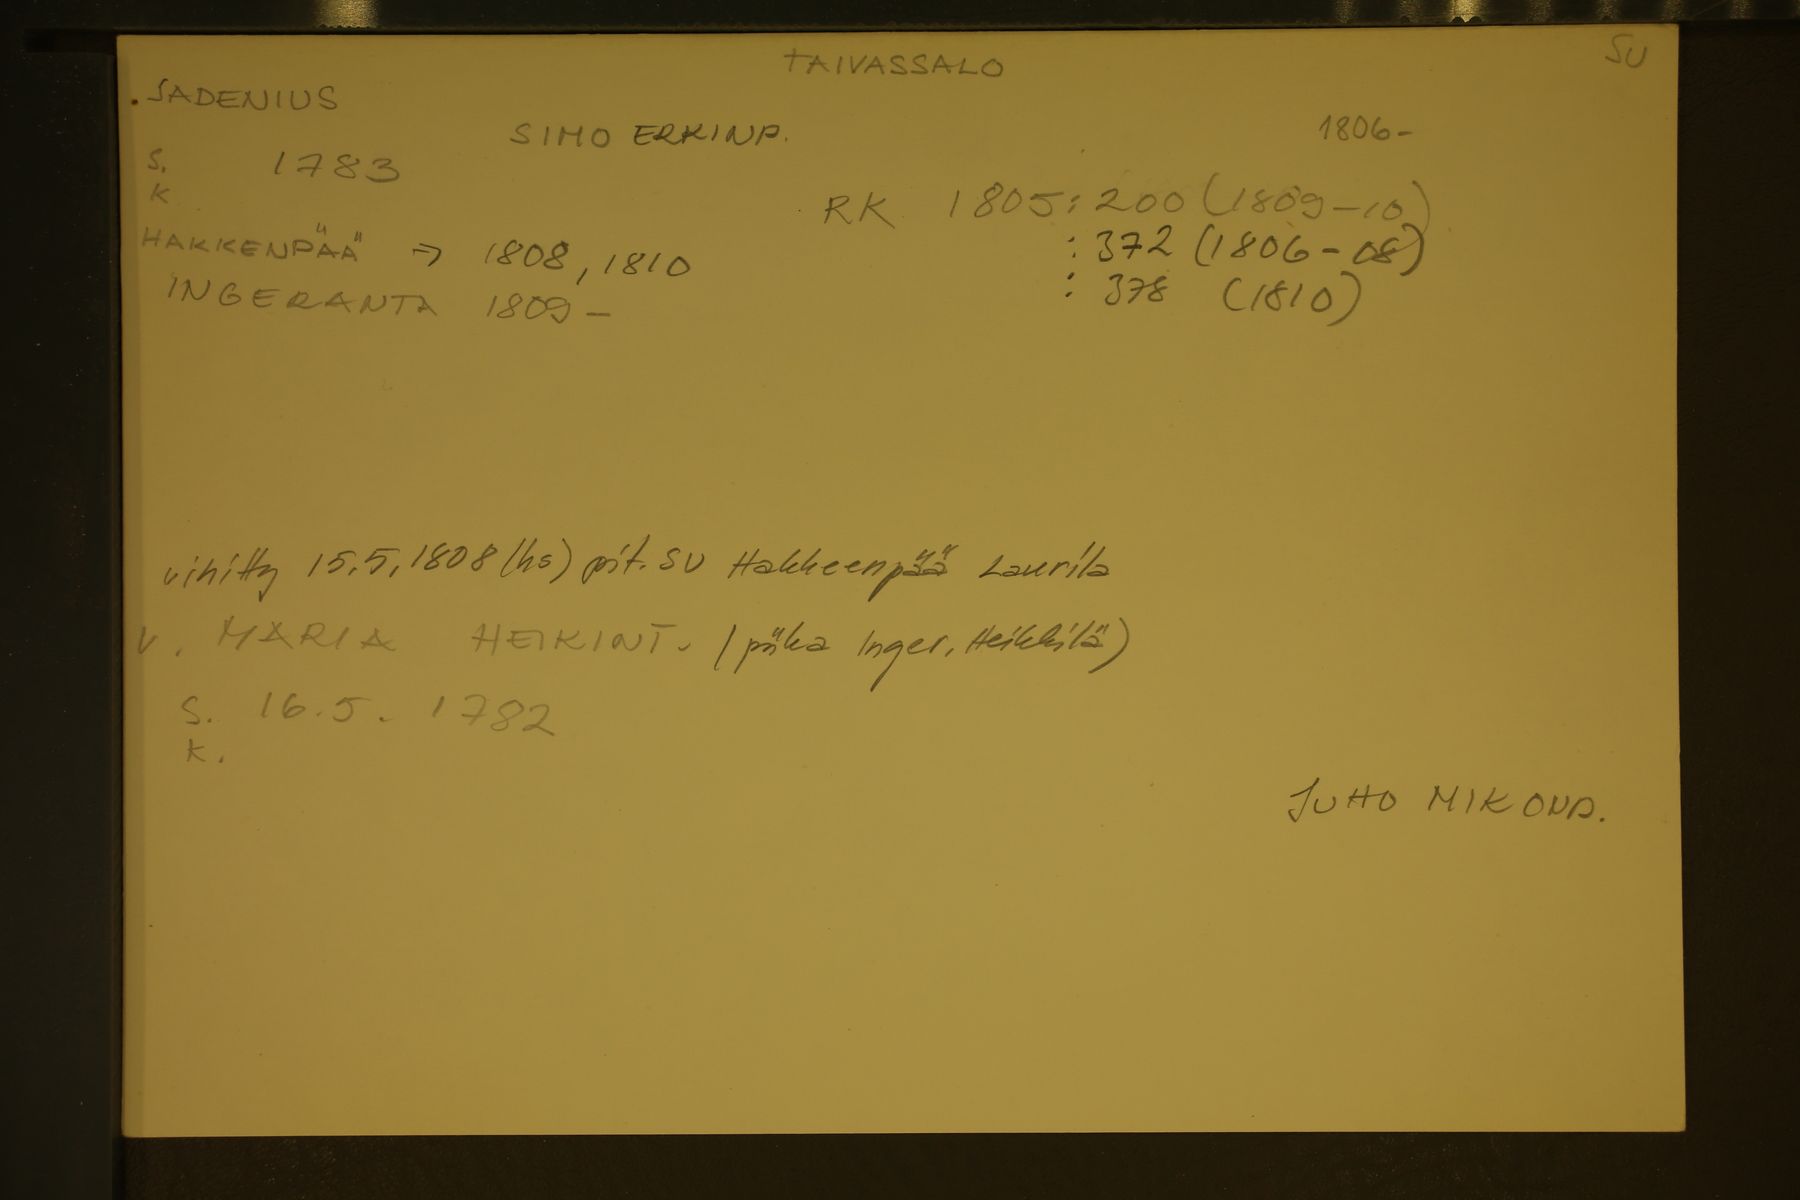 TAIVASSALO SU
SADENIUS
SIMO ERKINP. 1806-
S. 1783
K
RK 1805: 200 (1809-10)
HAKKENPÄÄ → 1808, 1810 : 372 (1806-08)
INGERANTA 1809- : 378 (1810)
vihitty 15.5.1808 (hs) pit. SU Hakkeenpää Laurila
V. MARIA HEIKINT. (piika Inger. Heikkilä)
S. 16.5. 1782
K.
JUHO MIKONP.